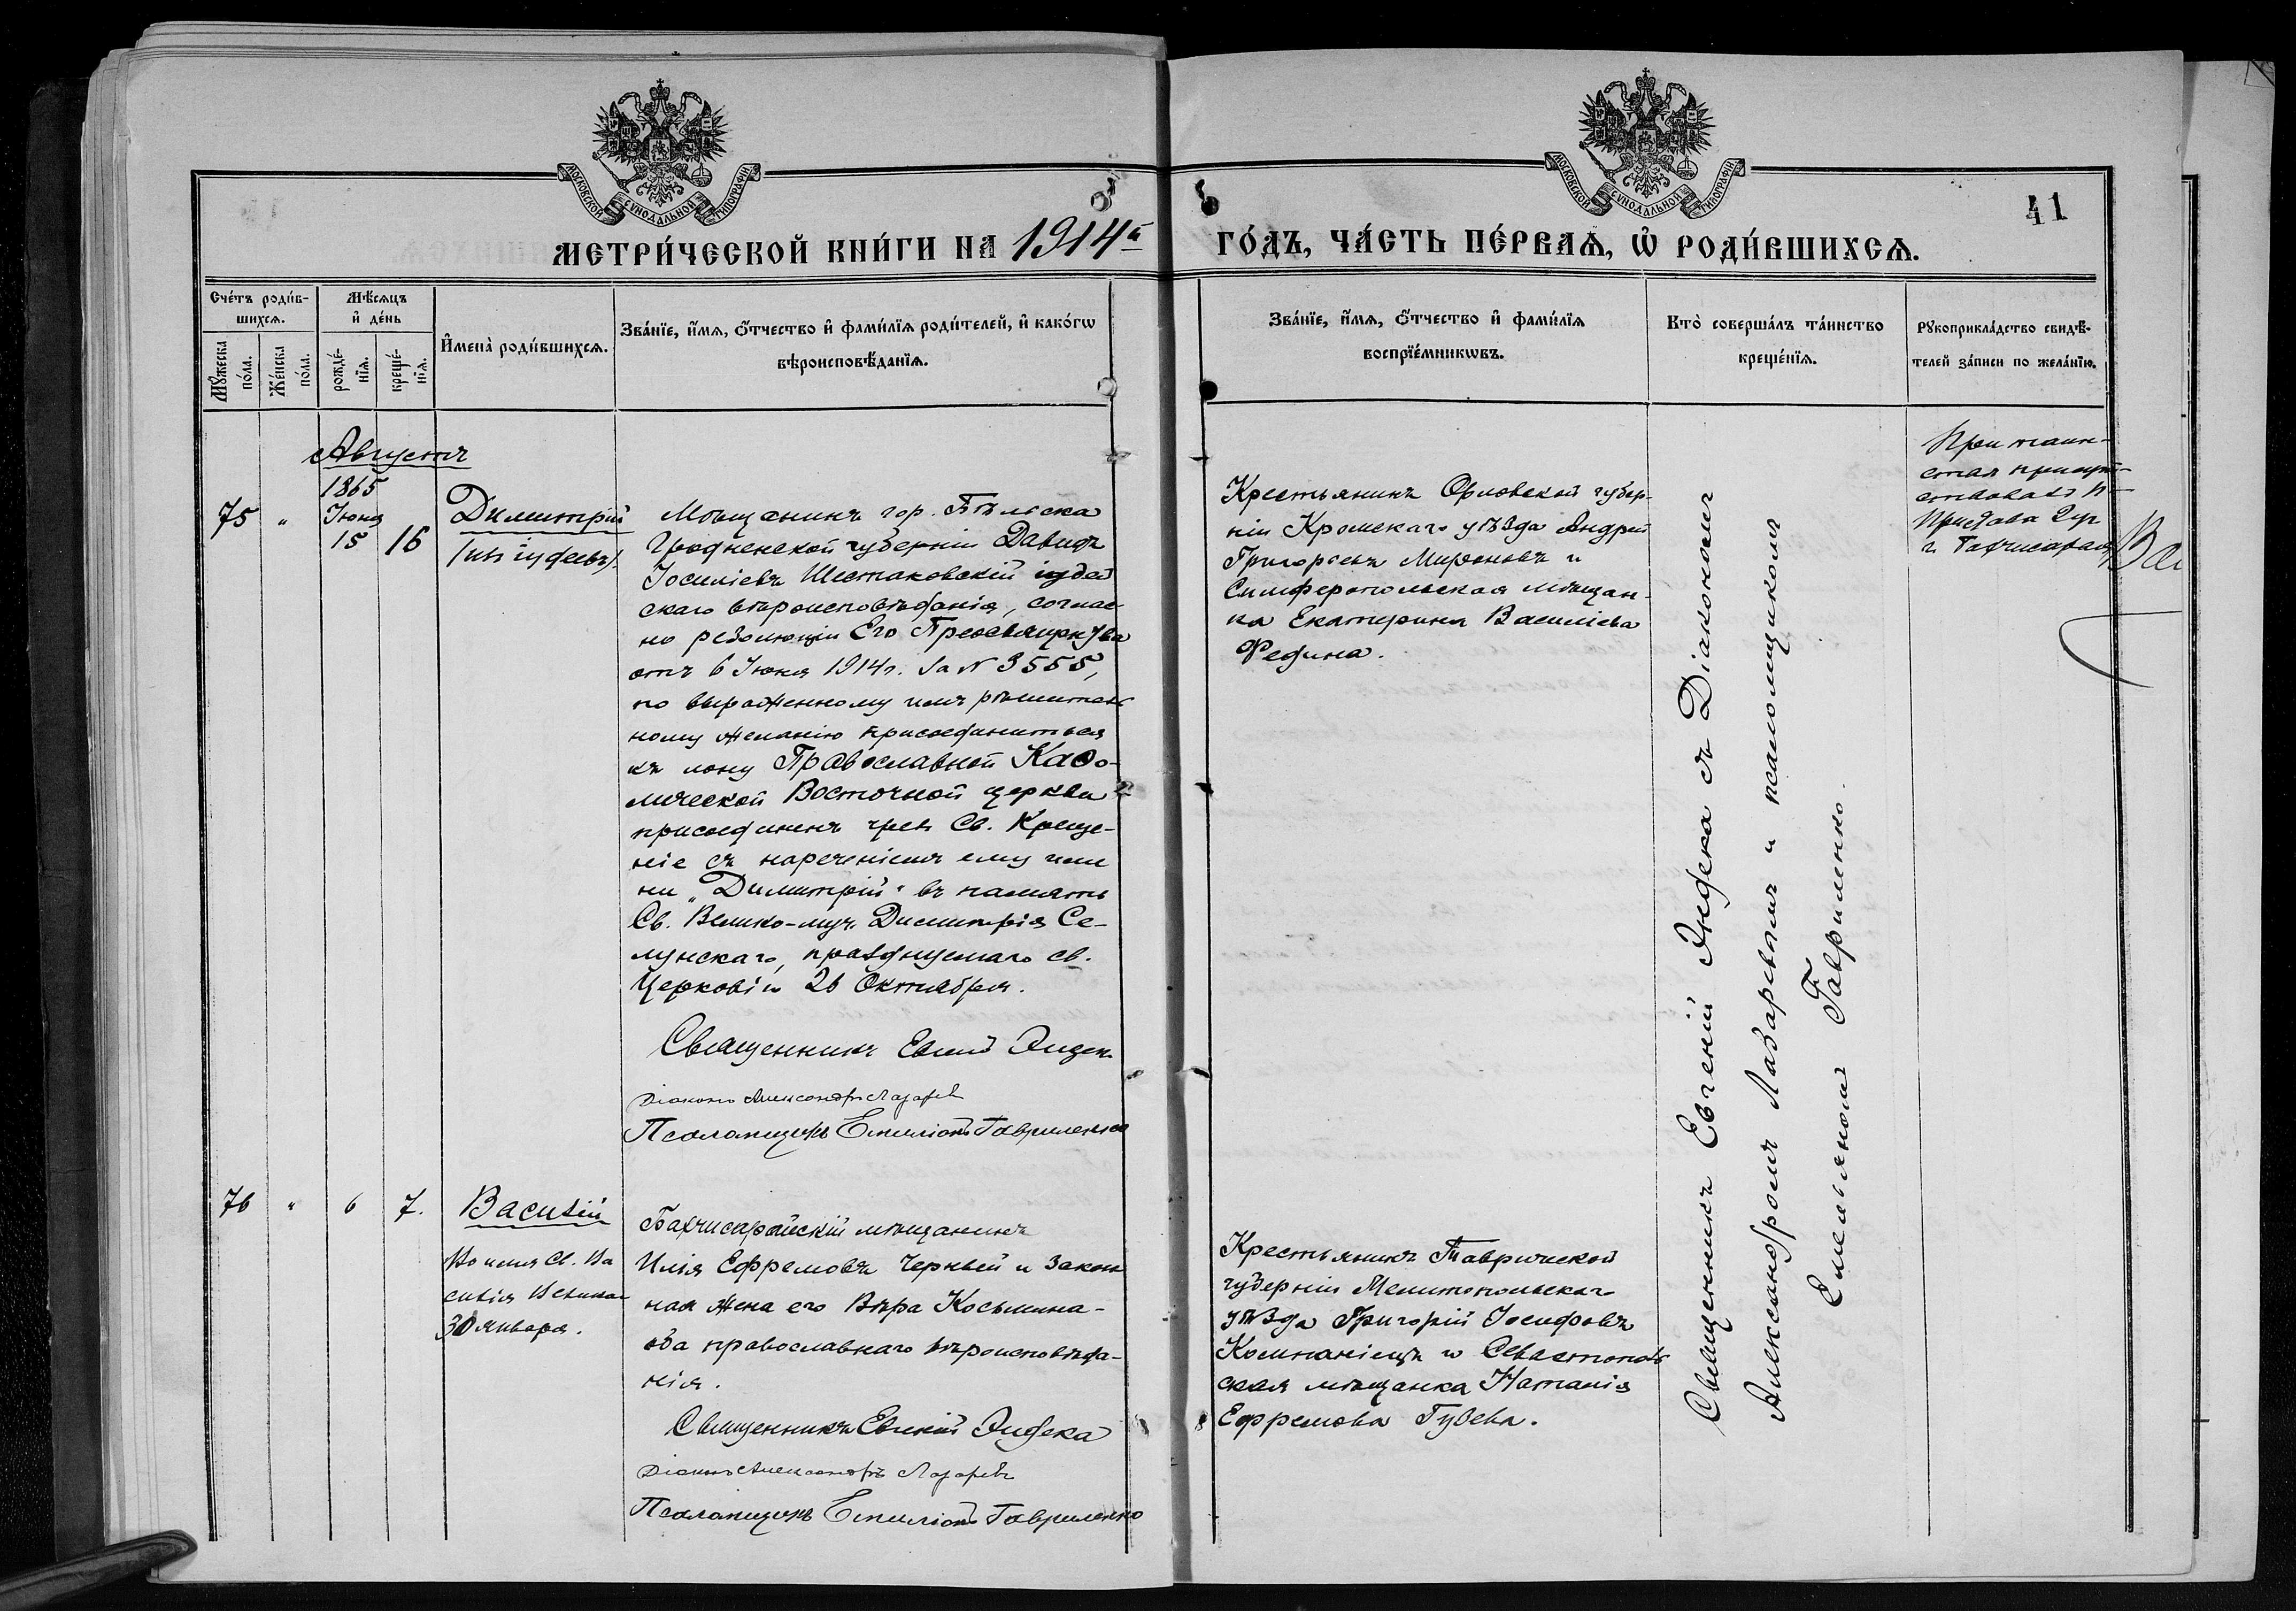 МОСКОВСКОЙ СѴНОДАЛЬНОЙ ТИПОГРАФІИ
МОСКОВСКОЙ СѴНОДАЛЬНОЙ ТИПОГРАФІИ
41
МЕТРИ́ЧЕСКОЙ КНИ́ГИ НА 1914й
ГО́ДЪ, ЧА́СТЬ ПЕ́РВАѦ, Ѡ҆ РОДИ́ВШИХСѦ.
Сче́тъ роди́в-
шихсѧ.
Мѣ́сѧцъ
и҆ де́нь
Мꙋ́жеска
по́ла.
Же́нска
по́ла.
рожде́-
нїѧ.
креще́-
нїѧ.
И҆мена̀ роди́вшихсѧ.
Зва́нїе, и҆́мѧ, о҆́тчество и҆ фами́лїѧ роди́телей, и҆ како́гѡ
вѣроисповѣ́данїѧ.
Зва́нїе, и҆́мѧ, о҆́тчество и҆ фами́лїѧ
воспрїе́мникѡвъ.
Кто̀ соверша́лъ та́инство
креще́нїѧ.
Рꙋкоприкла́дство свидѣ́-
телей за́писи по жела́нїю.
Августъ
75 " 1865
Іюня
15 16
Димитрій
(изъ іудеевъ).
Мѣщанинъ гор. Бѣльска
Гродненской губерніи Давидъ
Іосиліевъ Шестаковскій іудей
скаго вѣроисповѣданія, соглас-
но резолюціи Его Преосвященства
отъ 6 Іюня 1914 г. за № 3555,
по выраженному имъ рѣшитель
ному желанію присоединиться
къ лону Православной Каѳо-
лической Восточной церкви
присоединенъ чрезъ Св. Креще-
ніе съ нареченіемъ ему име
ни „Димитрій" въ память
Св. Велико-муч. Димитрія Се-
лунскаго, празднуемаго св.
Церковію 26 Октября.
Священникъ Евгеній Эндека
Діаконъ Александръ Лазаревъ
Псаломщикъ Емиліанъ Гавриленко
Крестьянинъ Орловской губер-
ніи Кромскаго уѣзда Андрей
Григорьевъ Мироновъ и
Симферопольская мѣщан-
ка Екатерина Василіева
Федина.
Священникъ Евгеній Эндека съ Діакономъ
Александромъ Лазаревымъ и псаломщикомъ
Емельяномъ Гавриленко.
При таин-
ствѣ присут-
ствовалъ
Пристава 2 уч.
г. Бахчисарая
76 " 6 7.
Василій
Во имя Св. Ва
силія Великаго
30 января.
Бахчисарайскій мѣщанинъ
Илія Ефремовъ Черный и закон
ная жена его Вѣра Косьмина-
оба православнаго вѣроисповѣда-
нія.
Священникъ Евгеній Эндека
Діаконъ Александръ Лазаревъ
Псаломщикъ Емиліанъ Гавриленко
Крестьянинъ Таврической
губерніи Мелитопольскаго
уѣзда Григорій Іосифовъ
Компаніецъ и Севастополь
ская мѣщанка Наталія
Ефремова Гузева.